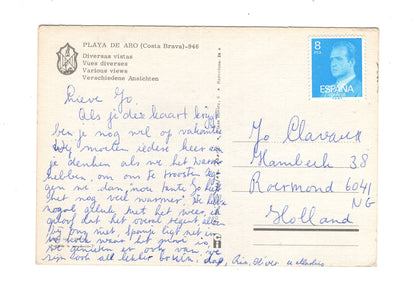 PLAYA DE ARO (Costa Brava)-946
Diversas vistas
Vues diverses
Various views
Verschiedene Ansichten
8
PTA
ESPAÑA
Lieve Jo.
Als je deze kaart krijgt
ben je nog wel op vakantie
Wij moeten iedere keer aan
je denken als we het warm
hebben, om ons te troosten zeg
gen we dan, nou tante Jo heeft
het nog veel warmer. We hebben
nogal geluk met het weer, ik
geloof dat het overal regent alleen
bij ons niet. Spanje ligt net in
hoek waar het mooi is,
we genieten er ook van we
zijn ook al lekker bruin. dag,
Jo Clavaux
Hambeek 38
Roermond 6041
NG
Holland